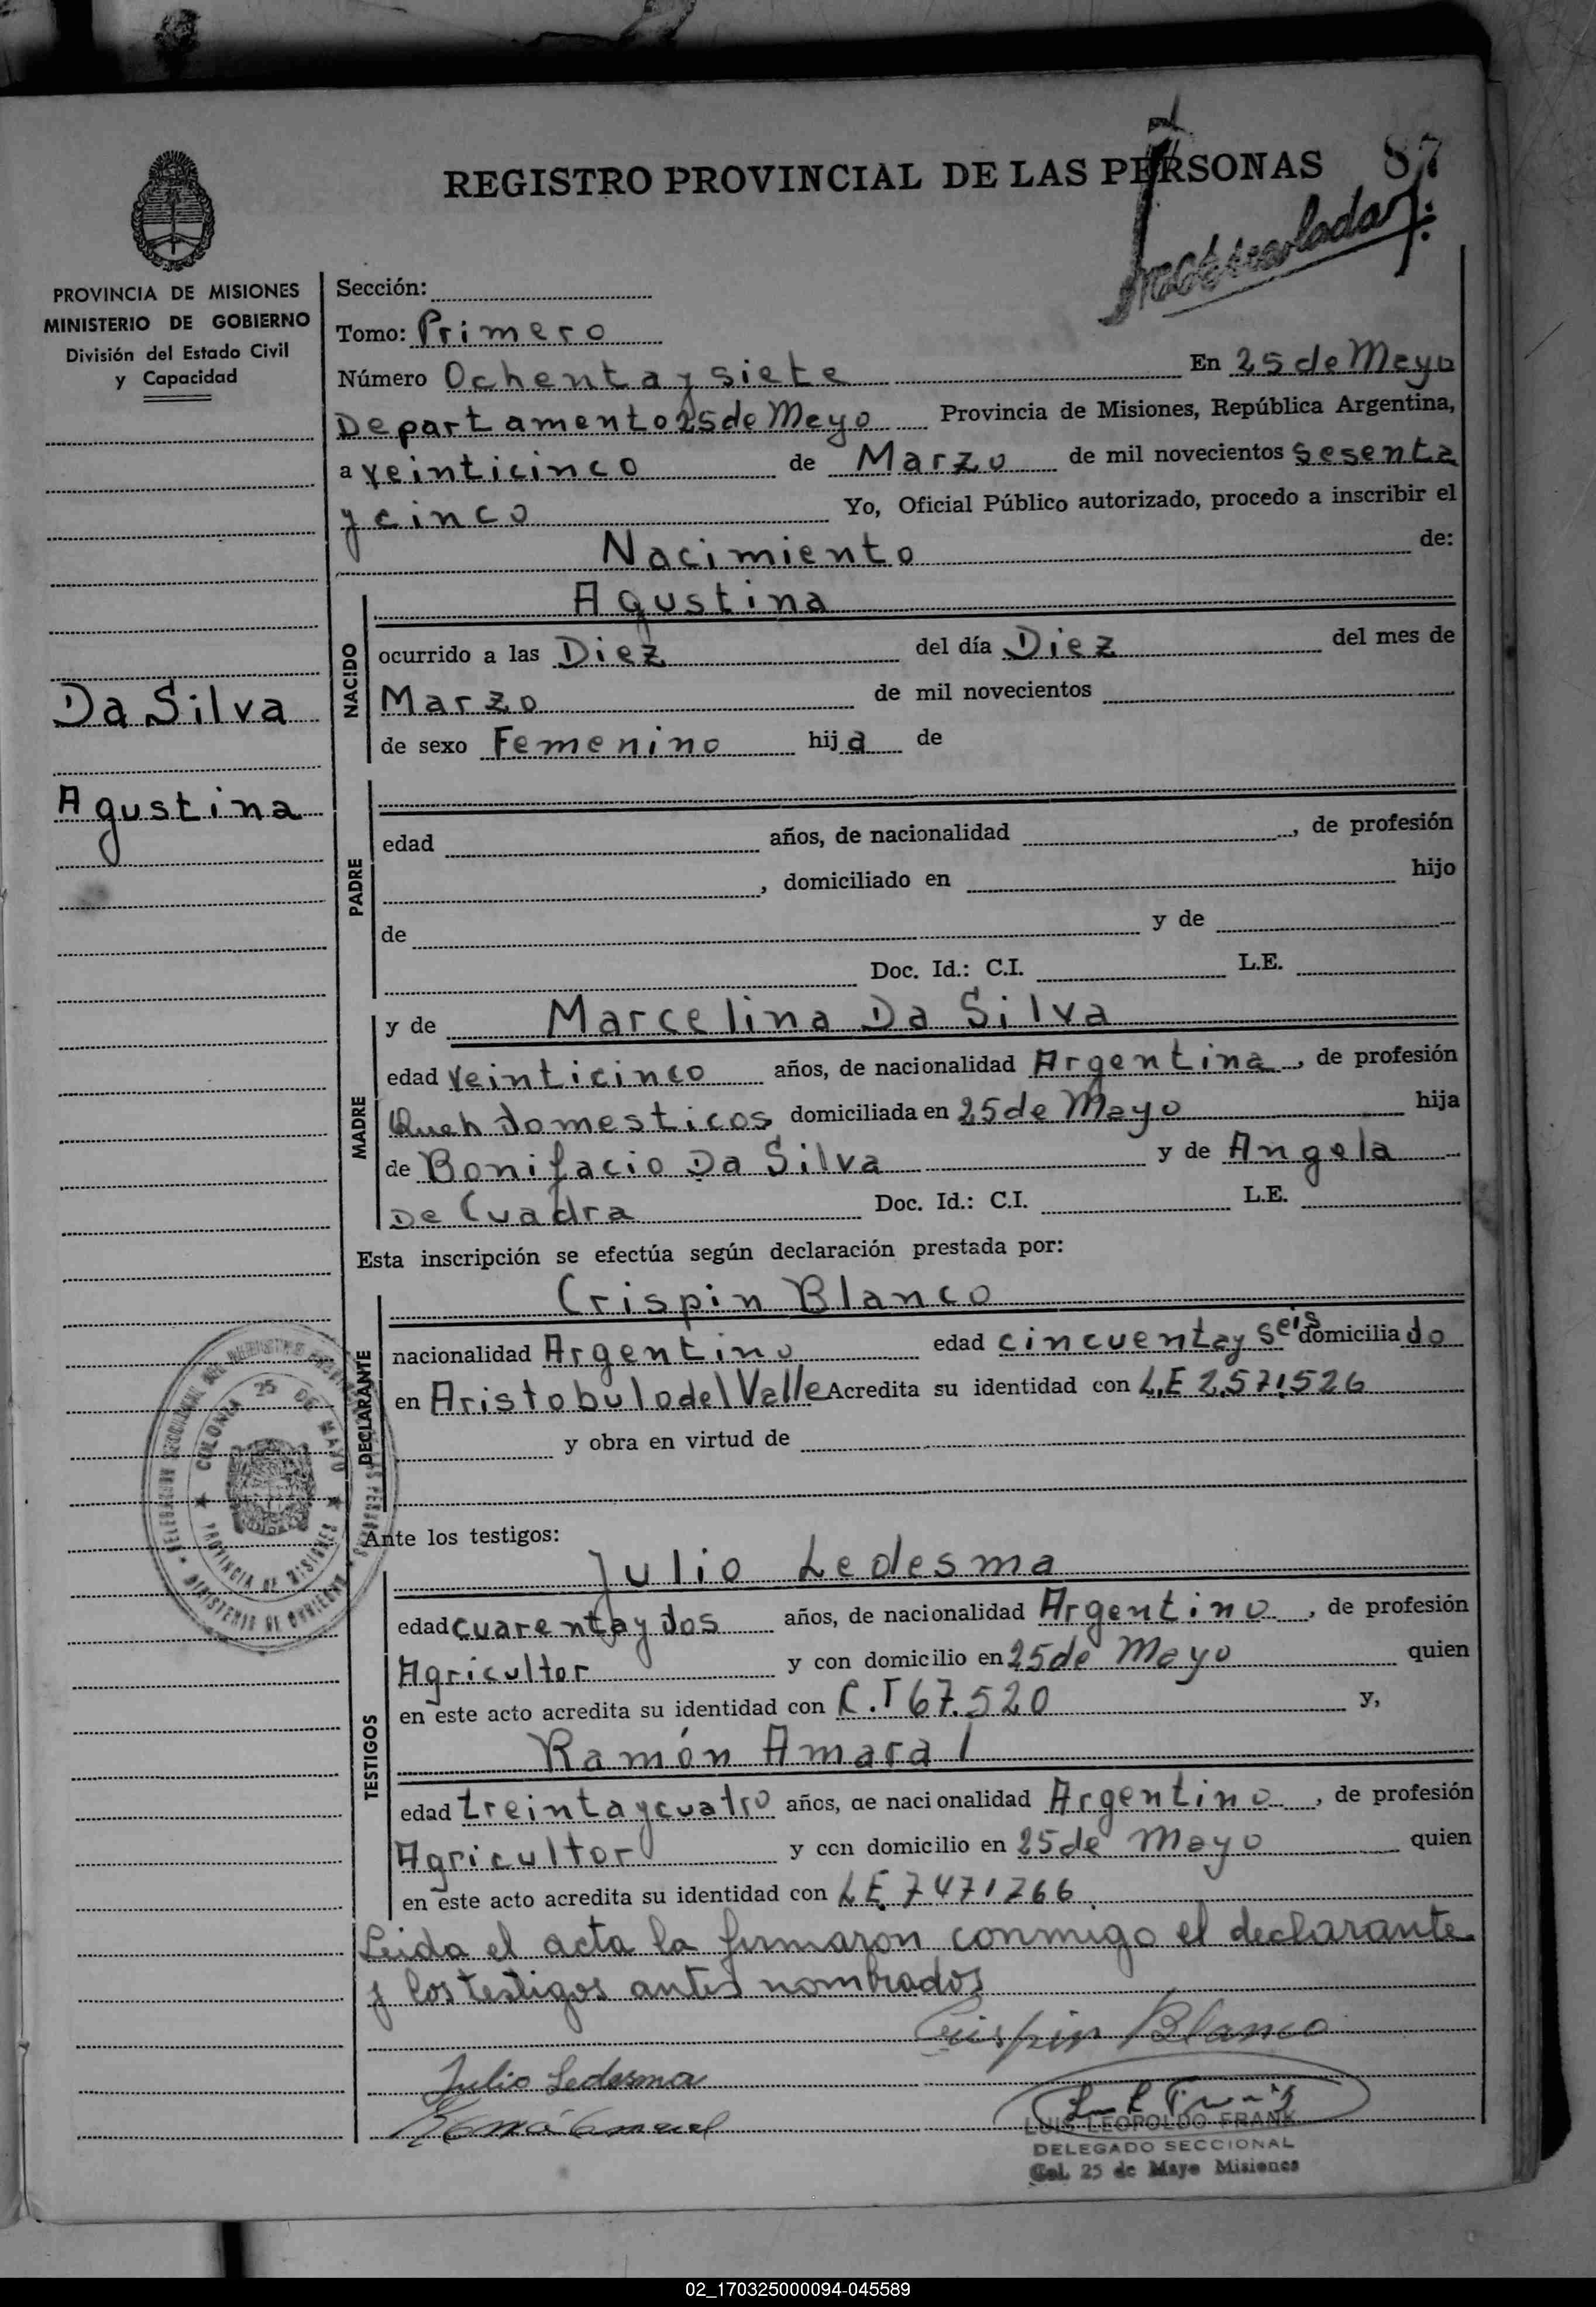 REGISTRO PROVINCIAL DE LAS PERSONAS
87
PROVINCIA DE MISIONES
MINISTERIO DE GOBIERNO
División del Estado Civil
y Capacidad
Sección:
Tomo: Primero
Número Ochenta y siete En 25 de Mayo
Departamento 25 de Mayo Provincia de Misiones, República Argentina,
a veinticinco de Marzo de mil novecientos sesenta
y cinco Yo, Oficial Público autorizado, procedo a inscribir el
Nacimiento de:
Agustina
NACIDO
ocurrido a las Diez del día Diez del mes de
Marzo de mil novecientos
de sexo Femenino hija de
Da Silva
Agustina
PADRE
edad años, de nacionalidad , de profesión
, domiciliado en hijo
de y de
Doc. Id.: C.I. L.E.
MADRE
y de Marcelina Da Silva
edad veinticinco años, de nacionalidad Argentina, de profesión
Queh domesticos domiciliada en 25 de Mayo hija
de Bonifacio Da Silva y de Angela
De Cuadra Doc. Id.: C.I. L.E.
Esta inscripción se efectúa según declaración prestada por:
Crispin Blanco
DECLARANTE
nacionalidad Argentino edad cincuenta y seis domiciliado
en Aristobulo del Valle Acredita su identidad con L.E 2.571.526
y obra en virtud de
COLONIA 25 DE MAYO
PROVINCIA DE MISIONES
MINISTERIO DE GOBIERNO
Ante los testigos:
Julio Ledesma
TESTIGOS
edad cuarenta y dos años, de nacionalidad Argentino, de profesión
Agricultor y con domicilio en 25 de Mayo quien
en este acto acredita su identidad con C.I 67.520 y,
Ramón Amaral
edad treinta y cuatro años, de nacionalidad Argentino, de profesión
Agricultor y con domicilio en 25 de Mayo quien
en este acto acredita su identidad con LE. 7471266
Leida el acta la firmaron conmigo el declarante
y los testigos antes nombrados
Crispin Blanco
Julio Ledesma
LUIS LEOPOLDO FRANK
DELEGADO SECCIONAL
Col. 25 de Mayo Misiones
02_170325000094-045589